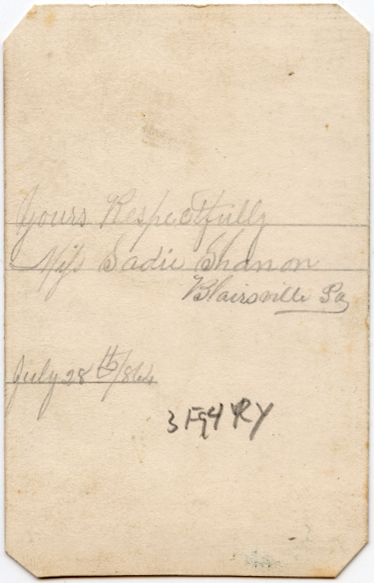 Yours Respectfully
Miss Sadie Shanon
Blairsville Pa
July 28th /864